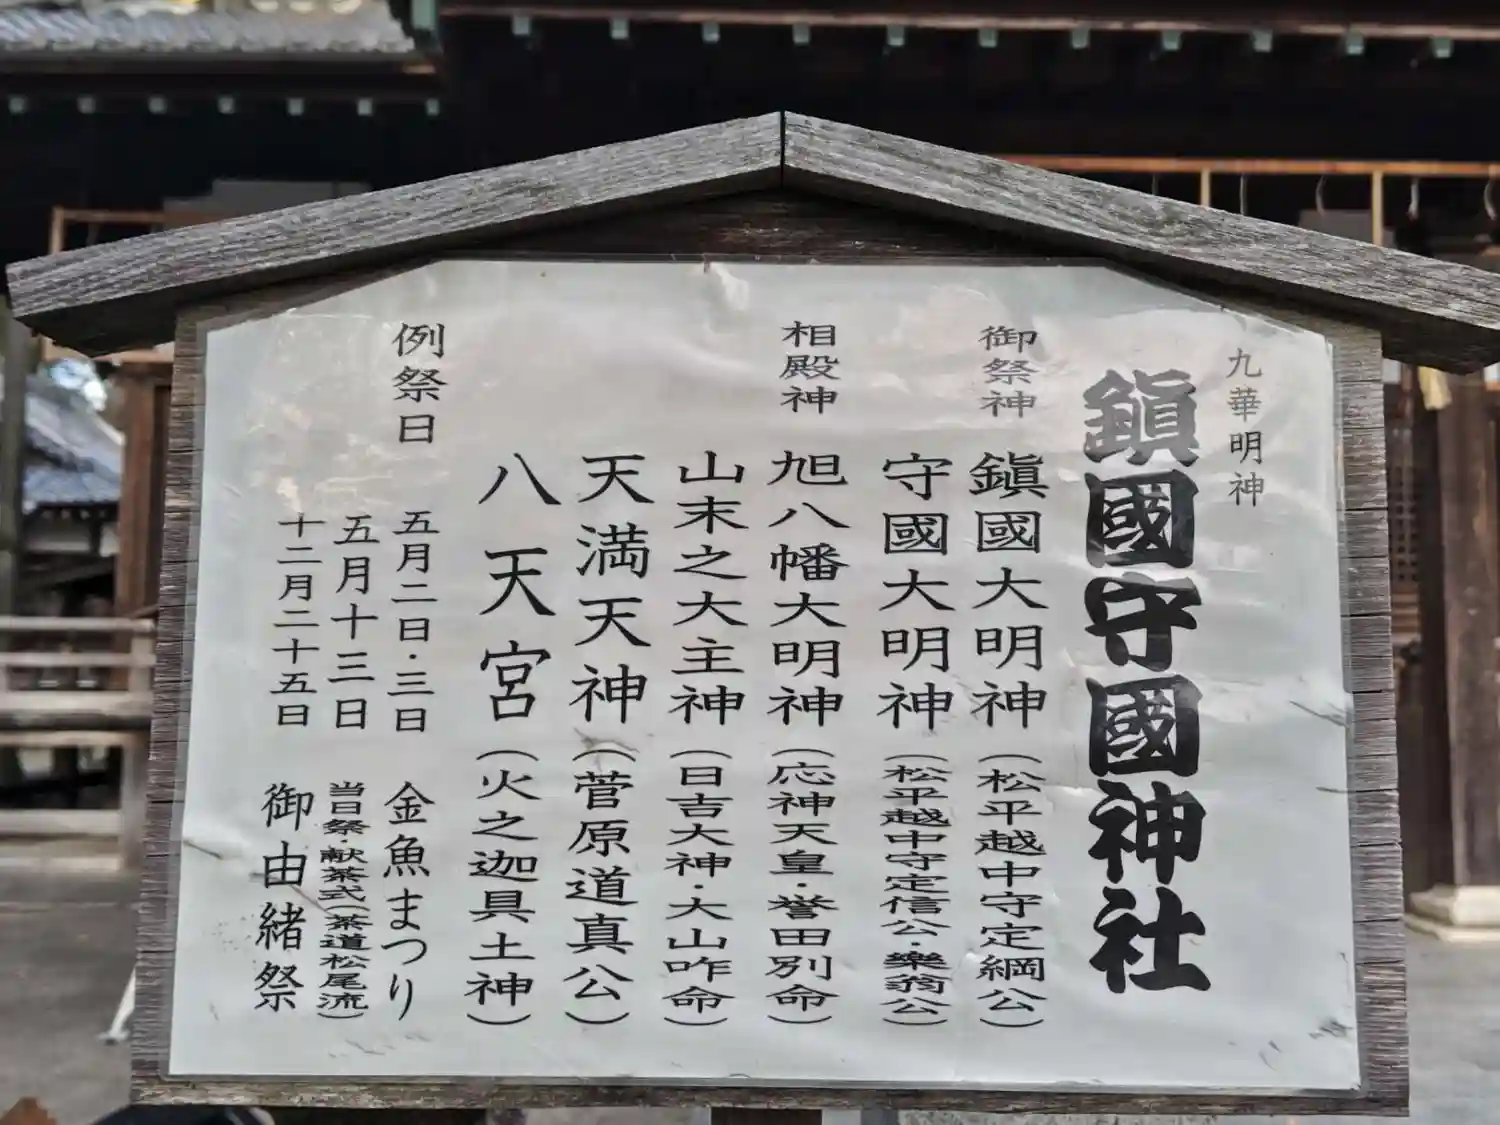 九華明神
鎭國守國神社
御祭神
鎭國大明神（松平越中守定綱公）
守國大明神（松平越中守定信公・樂翁公）
相殿神
旭八幡大明神（応神天皇・誉田別命）
山末之大主神（日吉大神・大山咋命）
天満天神（菅原道真公）
八天宮（火之迦具土神）
例祭日
五月二日・三日　金魚まつり
五月十三日　当日祭・献茶式（茶道松尾流）
十二月二十五日　御由緒祭